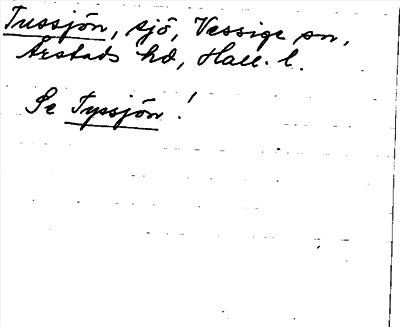 Tussjön, sjö, Vessige sn,
Årstads hd, Hall. l.
Se Tyssjön!